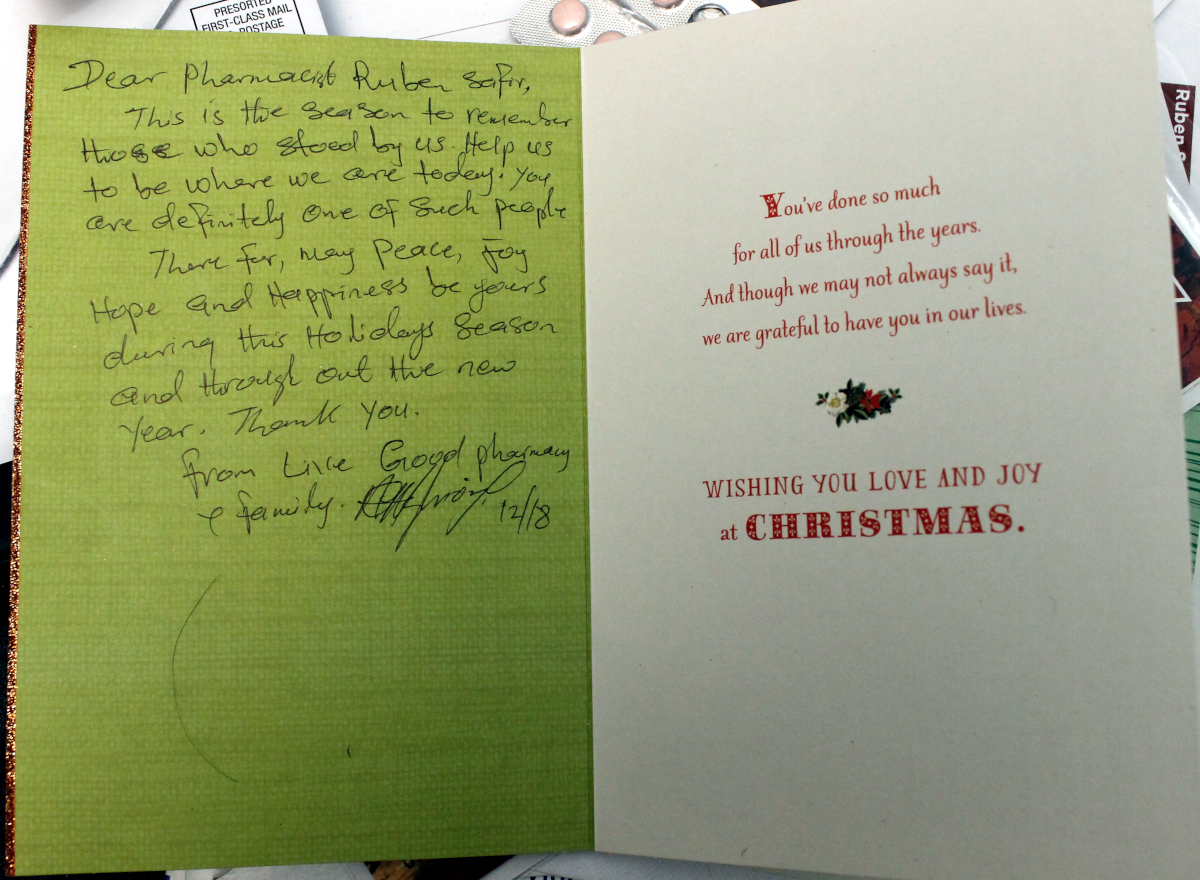 PRESORTED
FIRST-CLASS MAIL
POSTAGE
Dear Pharmacist Ruben Safir,
This is the season to remember
those who stood by us. Help us
to be where we are today. You
are definitely one of such people
There for, may Peace, Joy
Hope and Happiness be yours
during this Holidays Season
and through out the new
Year. Thank You.
from Live Good pharmacy
& family.
12/18
You've done so much
for all of us through the years.
And though we may not always say it,
we are grateful to have you in our lives.
WISHING YOU LOVE AND JOY
at CHRISTMAS.
Ruben